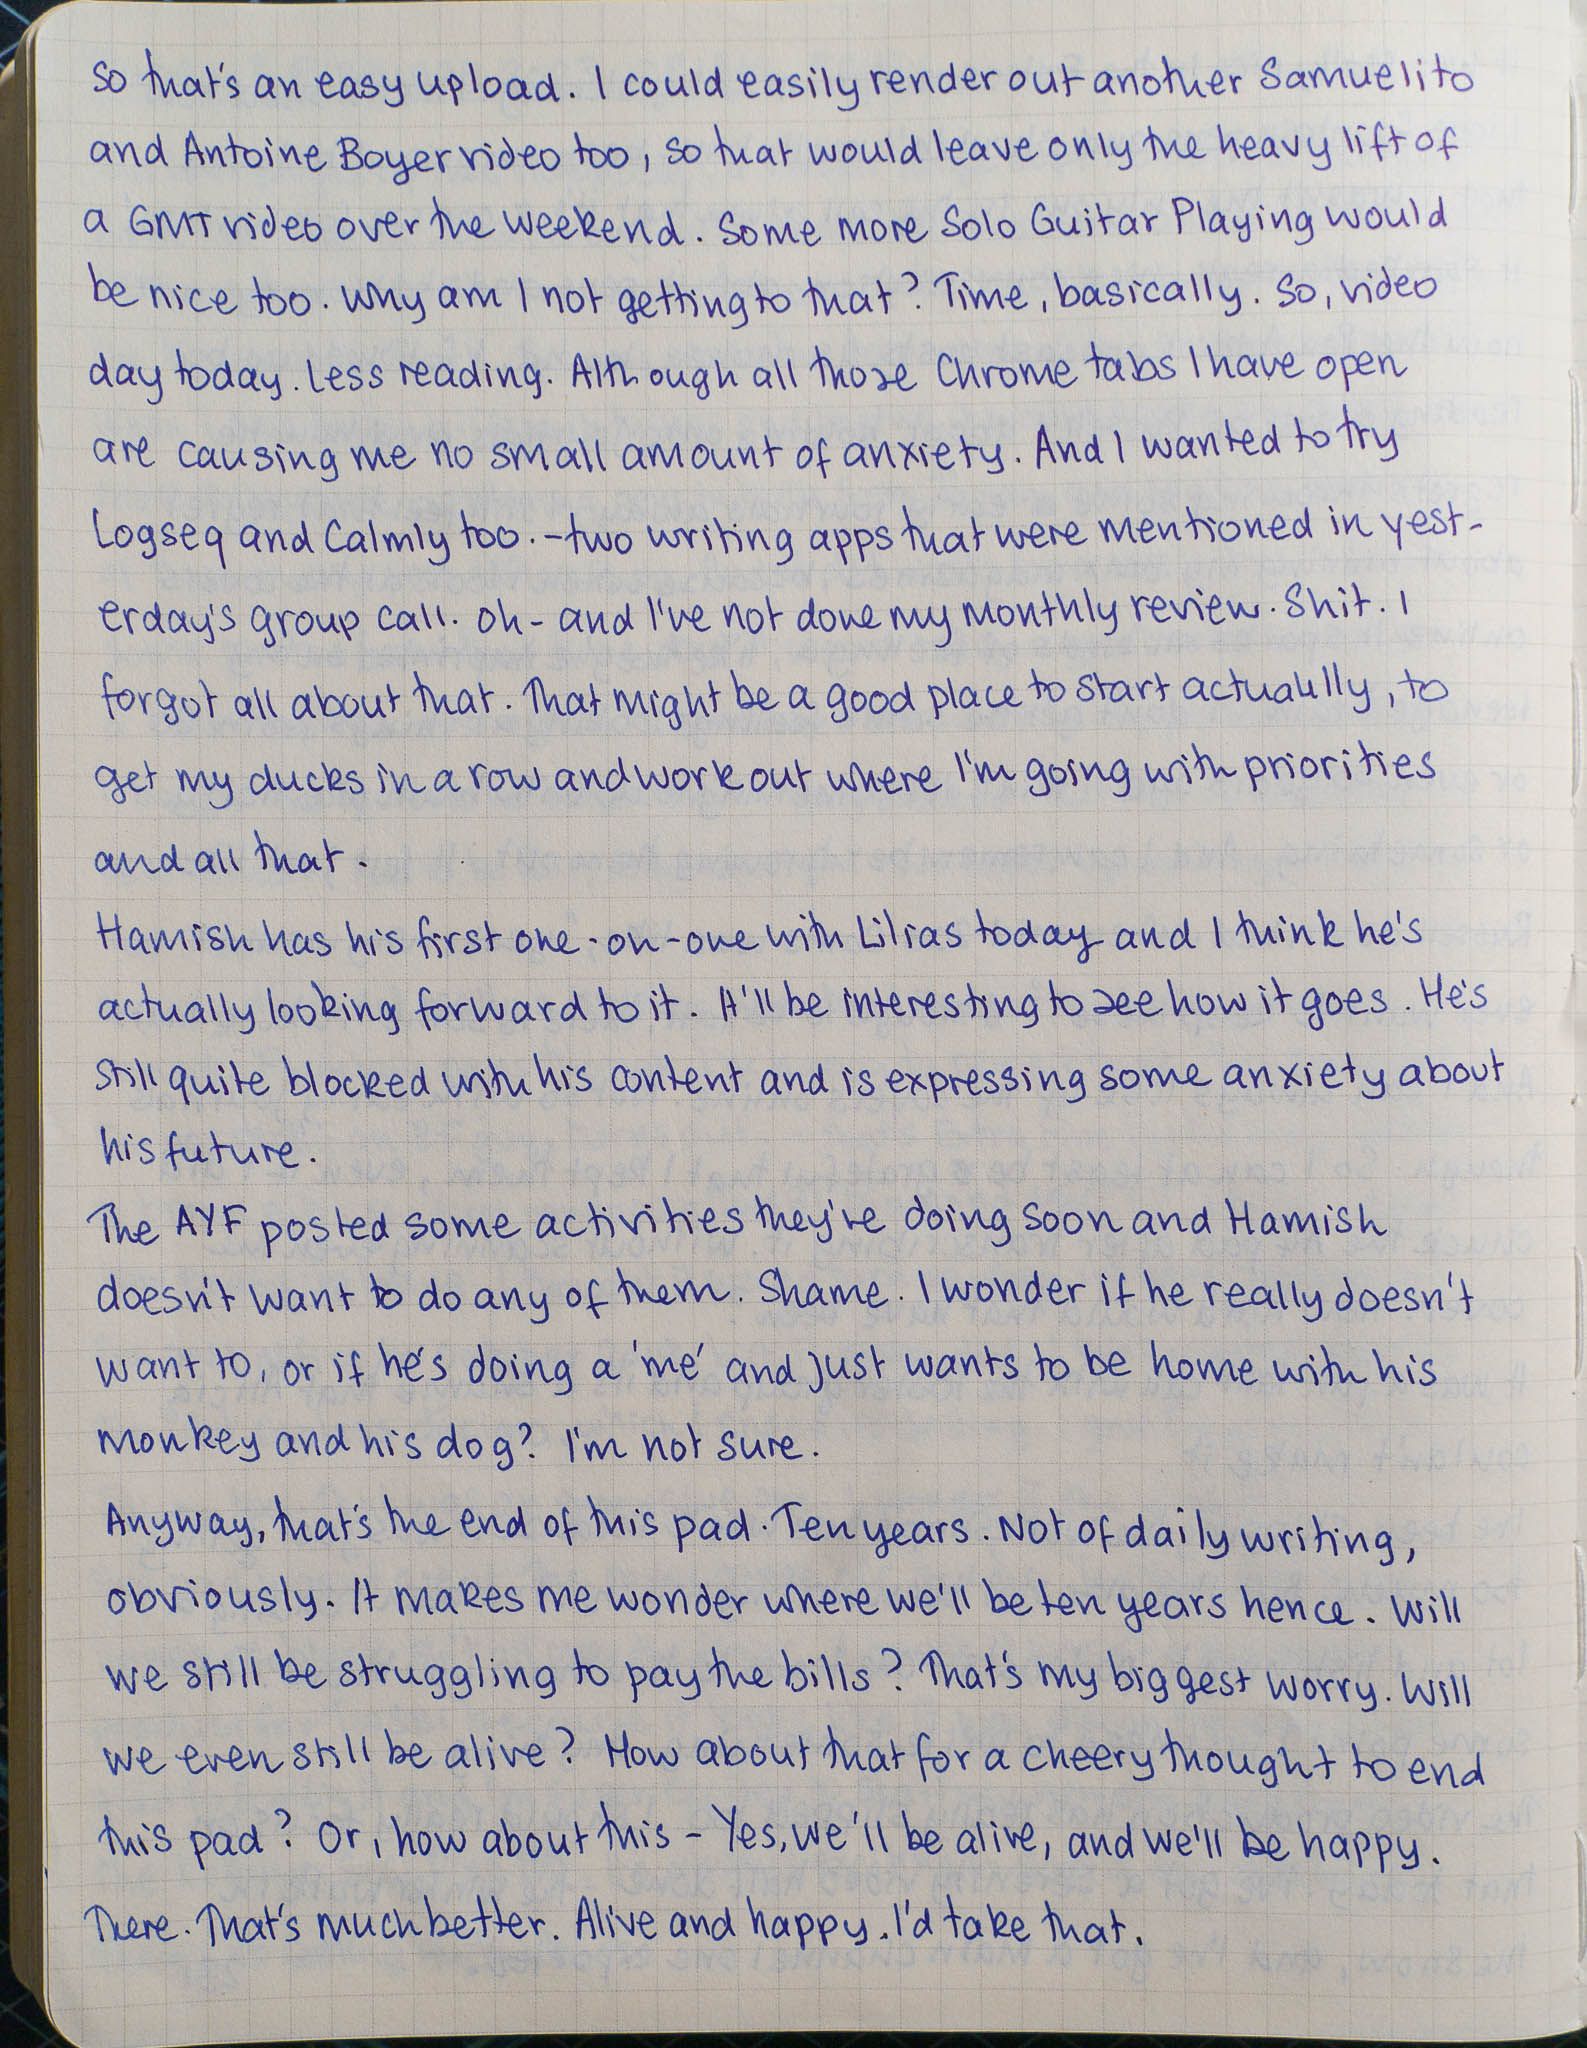 So that's an easy upload. I could easily render out another Samuelito
and Antoine Boyer video too, so that would leave only the heavy lift of
a GMT video over the weekend. Some more Solo Guitar Playing would
be nice too. Why am I not getting to that? Time, basically. So, video
day today. Less reading. Although all those Chrome tabs I have open
are causing me no small amount of anxiety. And I wanted to try
Logseq and Calmly too. - two writing apps that were mentioned in yest-
erday's group call. Oh - and I've not done my monthly review. Shit. I
forgot all about that. That might be a good place to start actually, to
get my ducks in a row and work out where I'm going with priorities
and all that.
Hamish has his first one-on-one with Lilias today and I think he's
actually looking forward to it. It'll be interesting to see how it goes. He's
still quite blocked with his content and is expressing some anxiety about
his future.
The AYF posted some activities they're doing soon and Hamish
doesn't want to do any of them. Shame. I wonder if he really doesn't
want to, or if he's doing a 'me' and just wants to be home with his
monkey and his dog? I'm not sure.
Anyway, that's the end of this pad. Ten years. Not of daily writing,
obviously. It makes me wonder where we'll be ten years hence. Will
we still be struggling to pay the bills? That's my biggest worry. Will
we even still be alive? How about that for a cheery thought to end
this pad? Or, how about this - Yes, we'll be alive, and we'll be happy.
There. That's much better. Alive and happy. I'd take that.